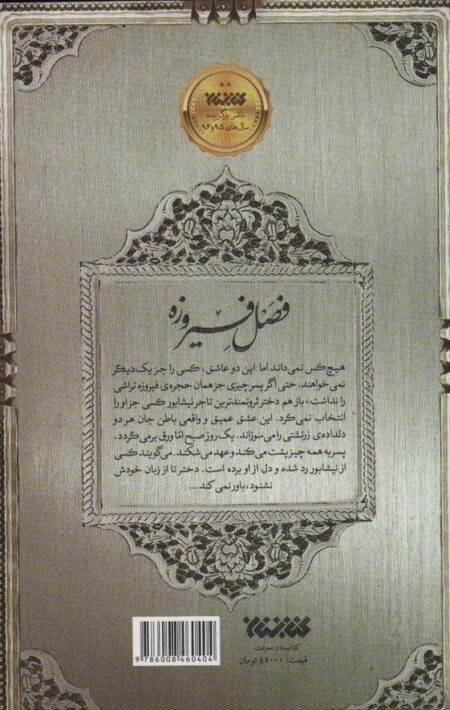 کتابستان
ناشر برگزیده
سال‌های ۹۵ و ۹۶
فصل فیروزه
هیچ‌کس نمی‌داند اما این دو عاشق، کسی را جز یک‌دیگر
نمی‌خواهند. حتی اگر پسر چیزی جز همان حجره‌ی فیروزه تراشی
را نداشت، باز هم دختر ثروتمندترین تاجر نیشابور کسی جز او را
انتخاب نمی‌کرد. این عشق عمیق و واقعی باطن جان هر دو
دلداده‌ی زرتشتی را می‌سوزاند. یک روز صبح اما ورق برمی‌گردد.
پسر به همه چیز پشت می‌کند و عهد می‌شکند. می‌گویند کسی
از نیشابور رد شده و دل از او برده است. دختر تا از زبان خودش
نشنود، باور نمی‌کند...
کتابستان
کتابستان معرفت
قیمت: ۴۵۰۰۰ تومان
9 786008 460404